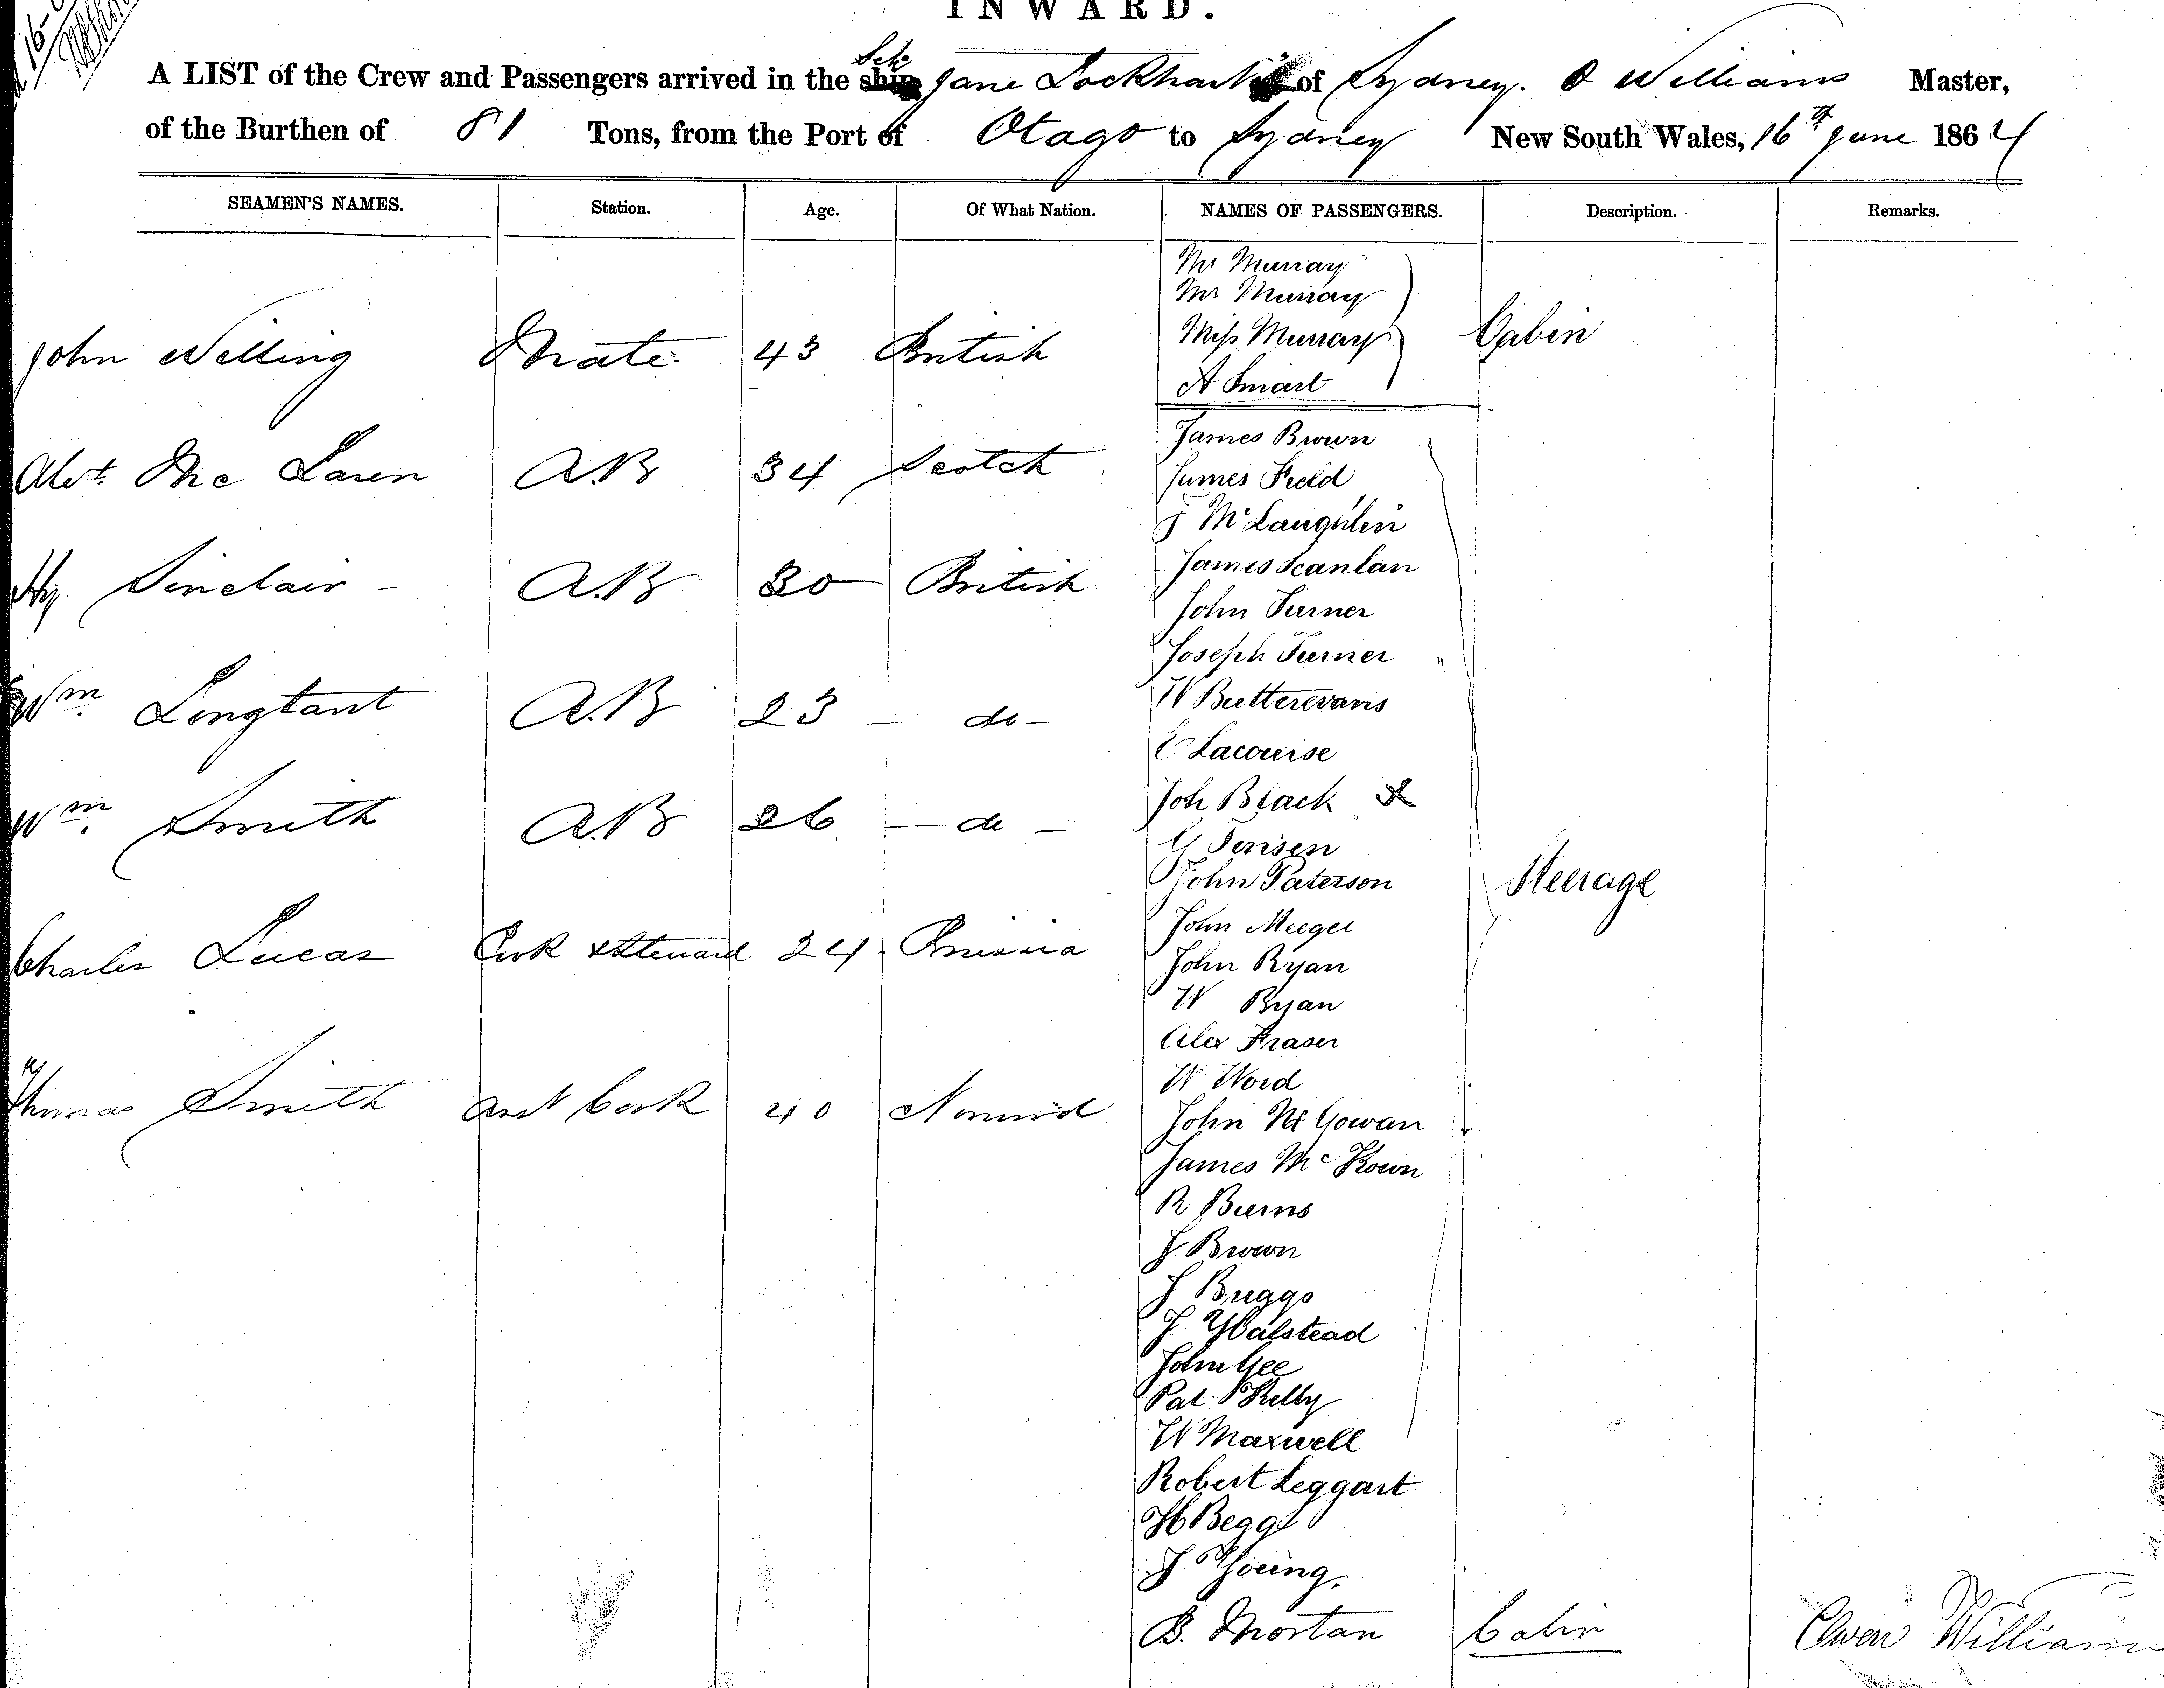 INWARD.
A LIST of the Crew and Passengers arrived in the Sch. Jane Lockhart of Sydney. O Williams Master,
of the Burthen of 81 Tons, from the Port of Otago to Sydney New South Wales, 16th June 1864
SEAMEN'S NAMES. Station. Age. Of What Nation. NAMES OF PASSENGERS. Description. Remarks.
Mr Murray
Mrs Murray
John Welling Mate 43 British Miss Murray Cabin
A Smart
James Brown
Alext. Mc Laren A.B 34 Scotch James Field
J McLaughlin
James Scanlan
Hy. Sinclair A.B 30 British John Turner
Joseph Turner
Wm. Longtant A.B 23 - do - W Butterevans
E Lacourse
Wm. Smith A.B 26 - do - Joh Black
G Jensen
John Paterson Steerage
John Meegee
Charles Lucas Cook & Steward 24 Prussia John Ryan
W Ryan
Alex Fraser
W Word
Thomas Smith Asst Cook 40 John McGowan
James McKown
R Burns
J Brown
J Briggs
J Halstead
John Gee
Pat Kelly
W Maxwell
Robert Leggart
H Begg
J Young.
B. Mortan Cabin Owen Williams